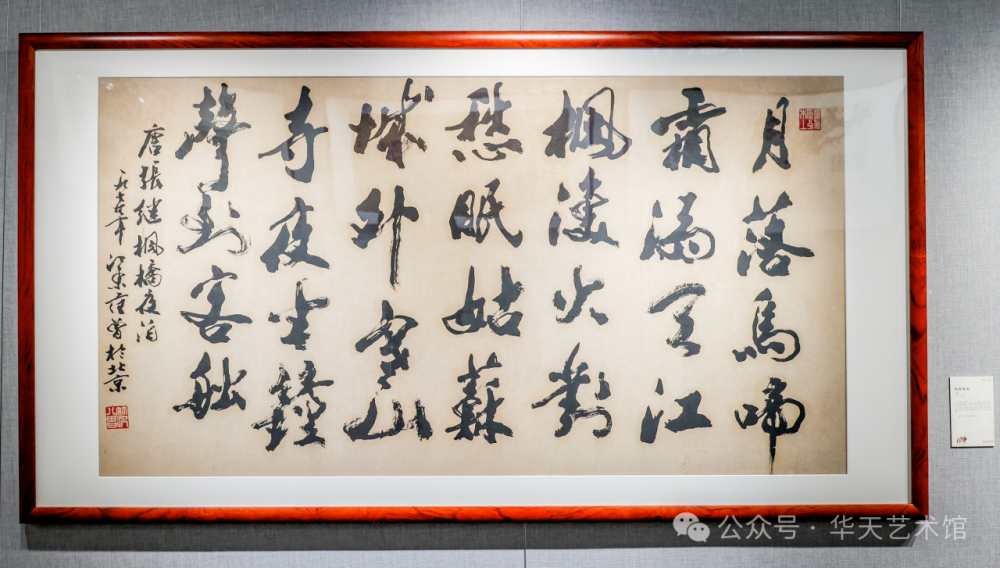 月落烏啼
霜滿天江
楓漁火對
愁眠姑蘇
城外寒山
寺夜半鐘
聲到客船
唐張継楓橋夜泊
江東范曾於北京
公众号·华天艺术馆